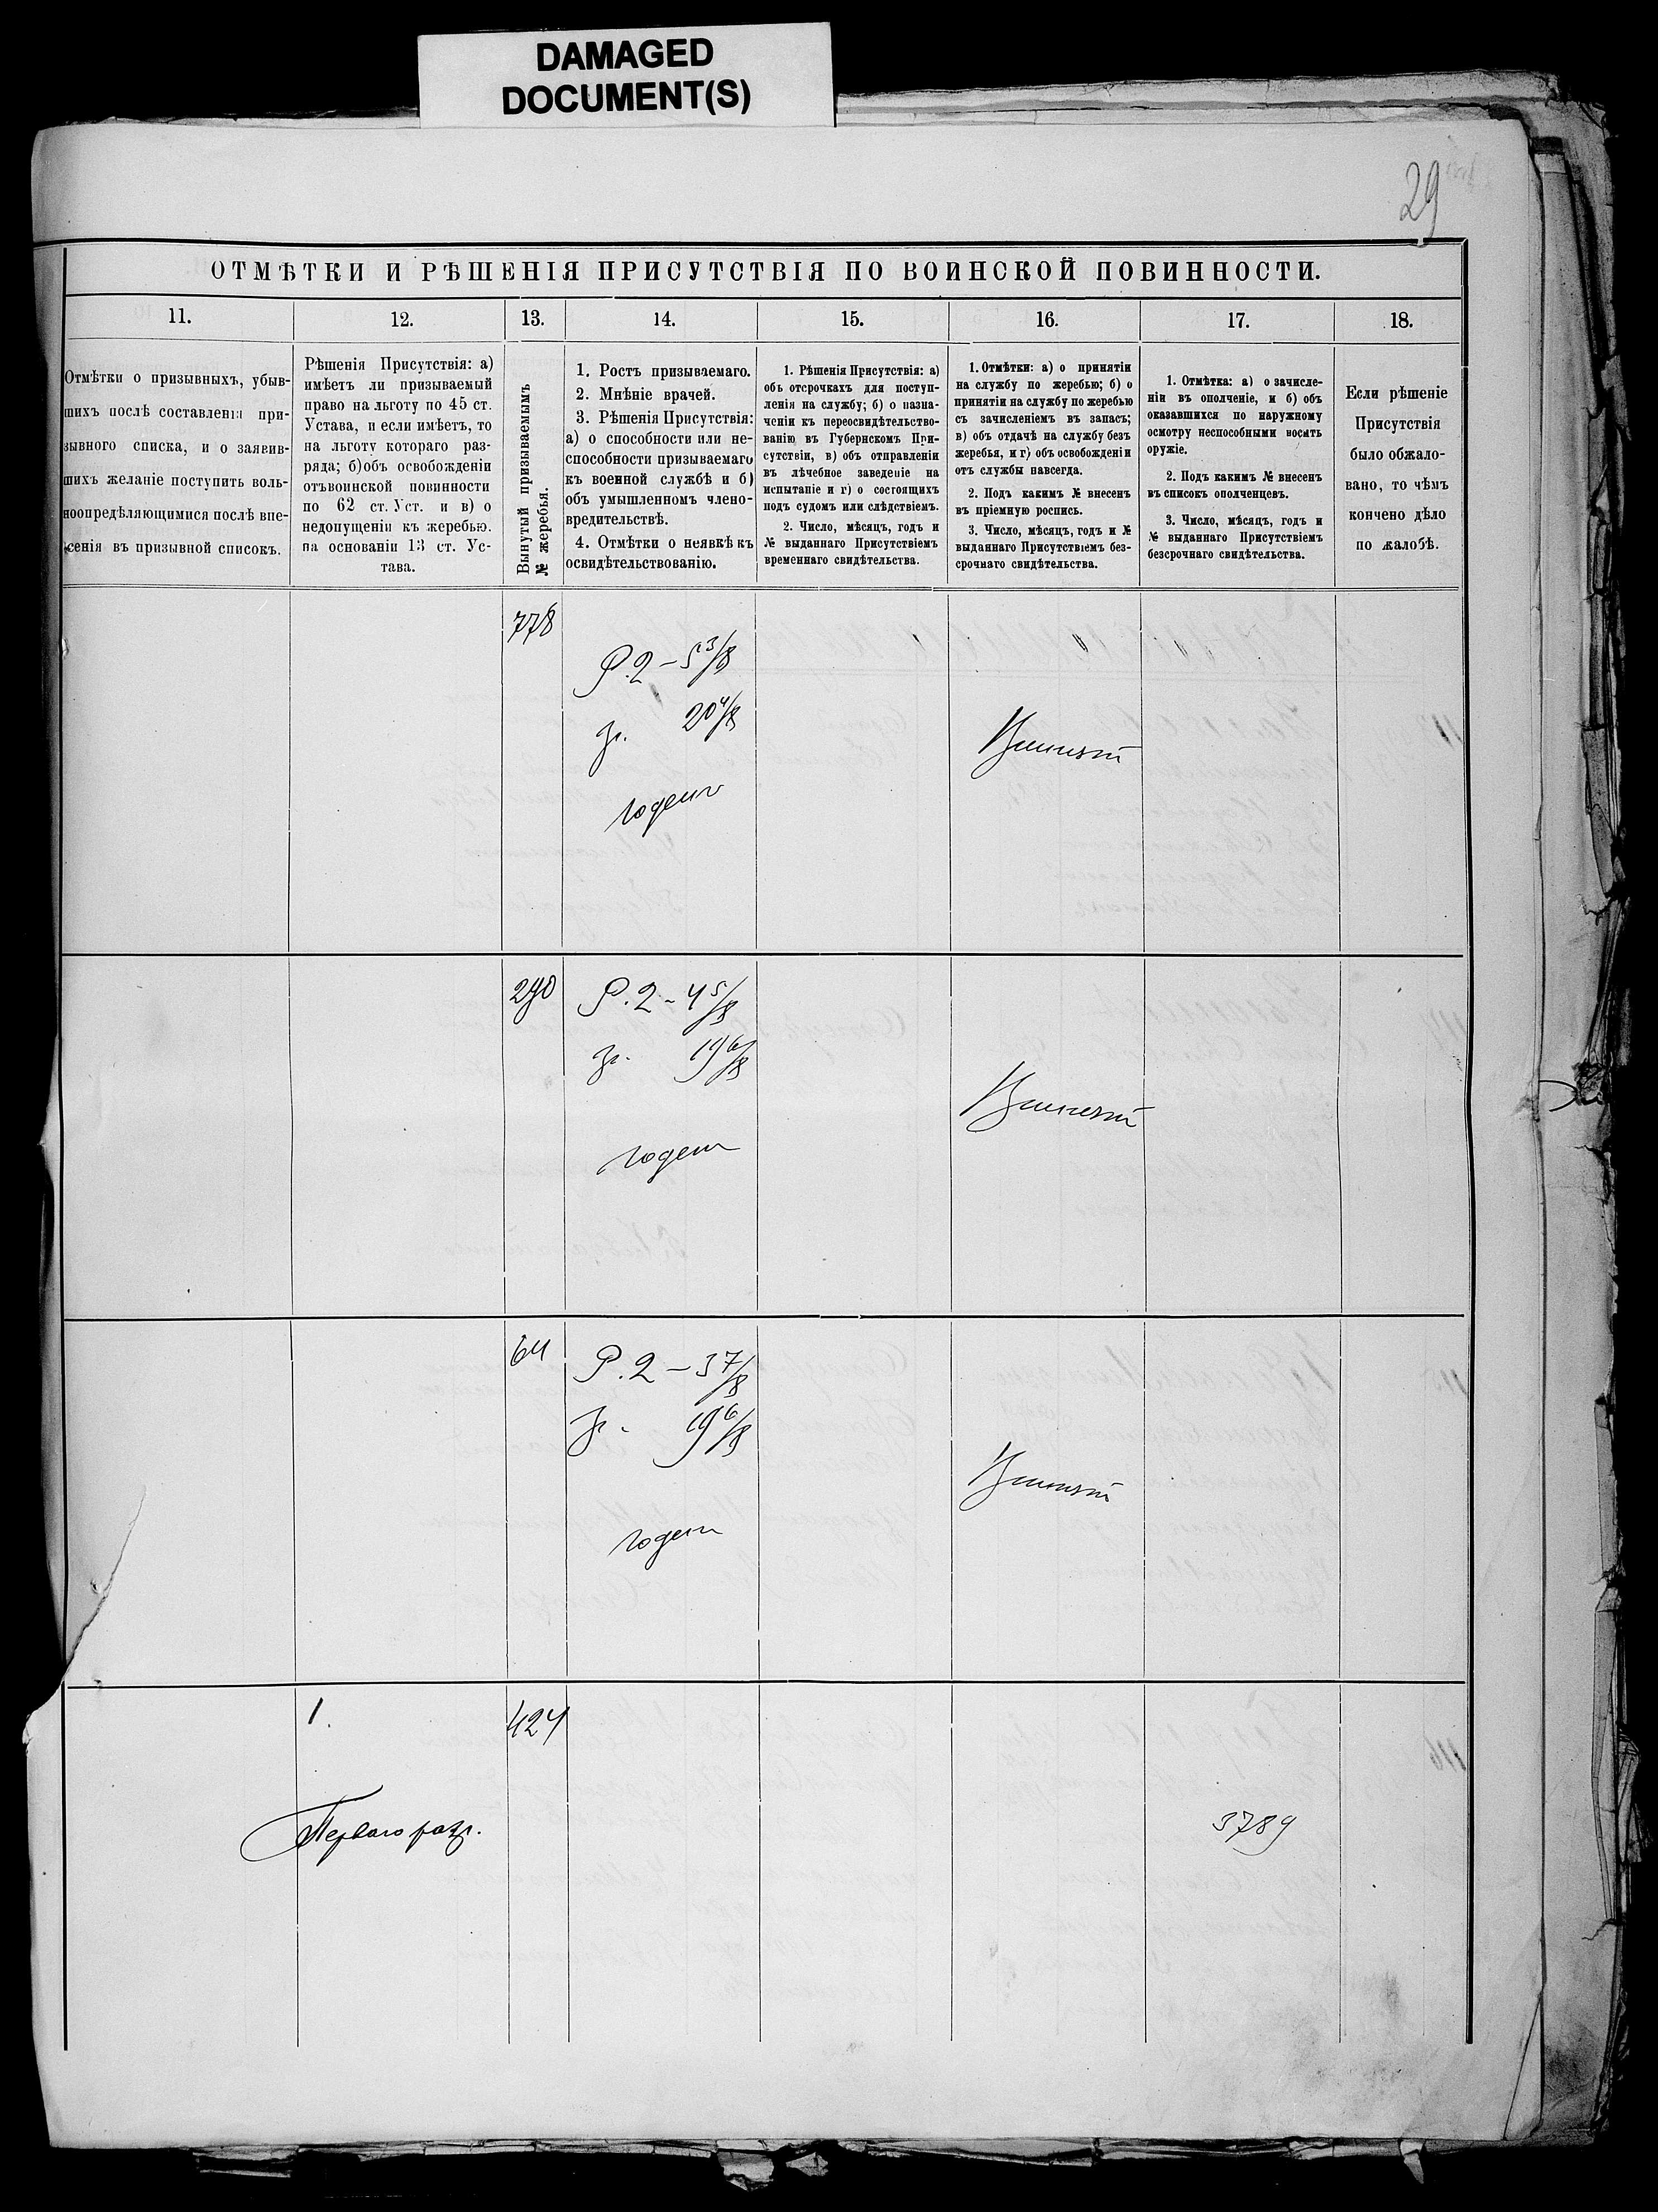 DAMAGED
DOCUMENT(S)
29
ОТМѢТКИ И РѢШЕНІЯ ПРИСУТСТВІЯ ПО ВОИНСКОЙ ПОВИННОСТИ.
11.
12.
13.
14.
15.
16.
17.
18.
Отмѣтки о призывныхъ, убыв-
шихъ послѣ составленія при-
зывного списка, и о заявив-
шихъ желаніе поступить воль-
ноопредѣляющимися послѣ вне-
сенія въ призывной списокъ.
Рѣшенія Присутствія: а)
имѣетъ ли призываемый
право на льготу по 45 ст.
Устава, и если имѣетъ, то
на льготу котораго раз-
ряда; б) объ освобожденіи
отъ воинской повинности
по 62 ст. Уст. и в) о
недопущеніи къ жеребью.
на основаніи 13 ст. Ус-
тава.
Вынутый призываемымъ
№ жеребья.
1. Ростъ призываемаго.
2. Мнѣніе врачей.
3. Рѣшенія Присутствія:
а) о способности или не-
способности призываемаго
къ военной службѣ и б)
объ умышленномъ члено-
вредительствѣ.
4. Отмѣтки о неявкѣ къ
освидѣтельствованію.
1. Рѣшенія Присутствія: а)
объ отсрочкахъ для поступ-
ленія на службу; б) о назна-
ченіи къ переосвидѣтельство-
ванію въ Губернскомъ При-
сутствіи, в) объ отправленіи
въ лѣчебное заведеніе на
испытаніе и г) о состоящихъ
подъ судомъ или слѣдствіемъ.
2. Число, мѣсяцъ, годъ и
№ выданнаго Присутствіемъ
временнаго свидѣтельства.
1. Отмѣтки: а) о принятіи
на службу по жеребью; б) о
принятіи на службу по жеребью
съ зачисленіемъ въ запасъ;
в) объ отдачѣ на службу безъ
жеребья, и г) объ освобожденіи
отъ службы навсегда.
2. Подъ какимъ № внесенъ
въ пріемную роспись.
3. Число, мѣсяцъ, годъ и №
выданнаго Присутствіемъ без-
срочнаго свидѣтельства.
1. Отмѣтка: а) о зачисле-
ніи въ ополченіе, и б) объ
оказавшихся по наружному
осмотру неспособными носить
оружіе.
2. Подъ какимъ № внесенъ
въ списокъ ополченцевъ.
3. Число, мѣсяцъ, годъ и
№ выданнаго Присутствіемъ
безсрочнаго свидѣтельства.
Если рѣшеніе
Присутствія
было обжало-
вано, то чѣмъ
кончено дѣло
по жалобѣ.
778
Р. 2 – 5 3/8
гр. 20 4/8
годенъ
290
Р. 2 – 4 5/8
гр. 19 6/8
годенъ
64
Р. 2 – 3 7/8
гр. 19 6/8
годенъ
1.
424
Перваго разр.
3789